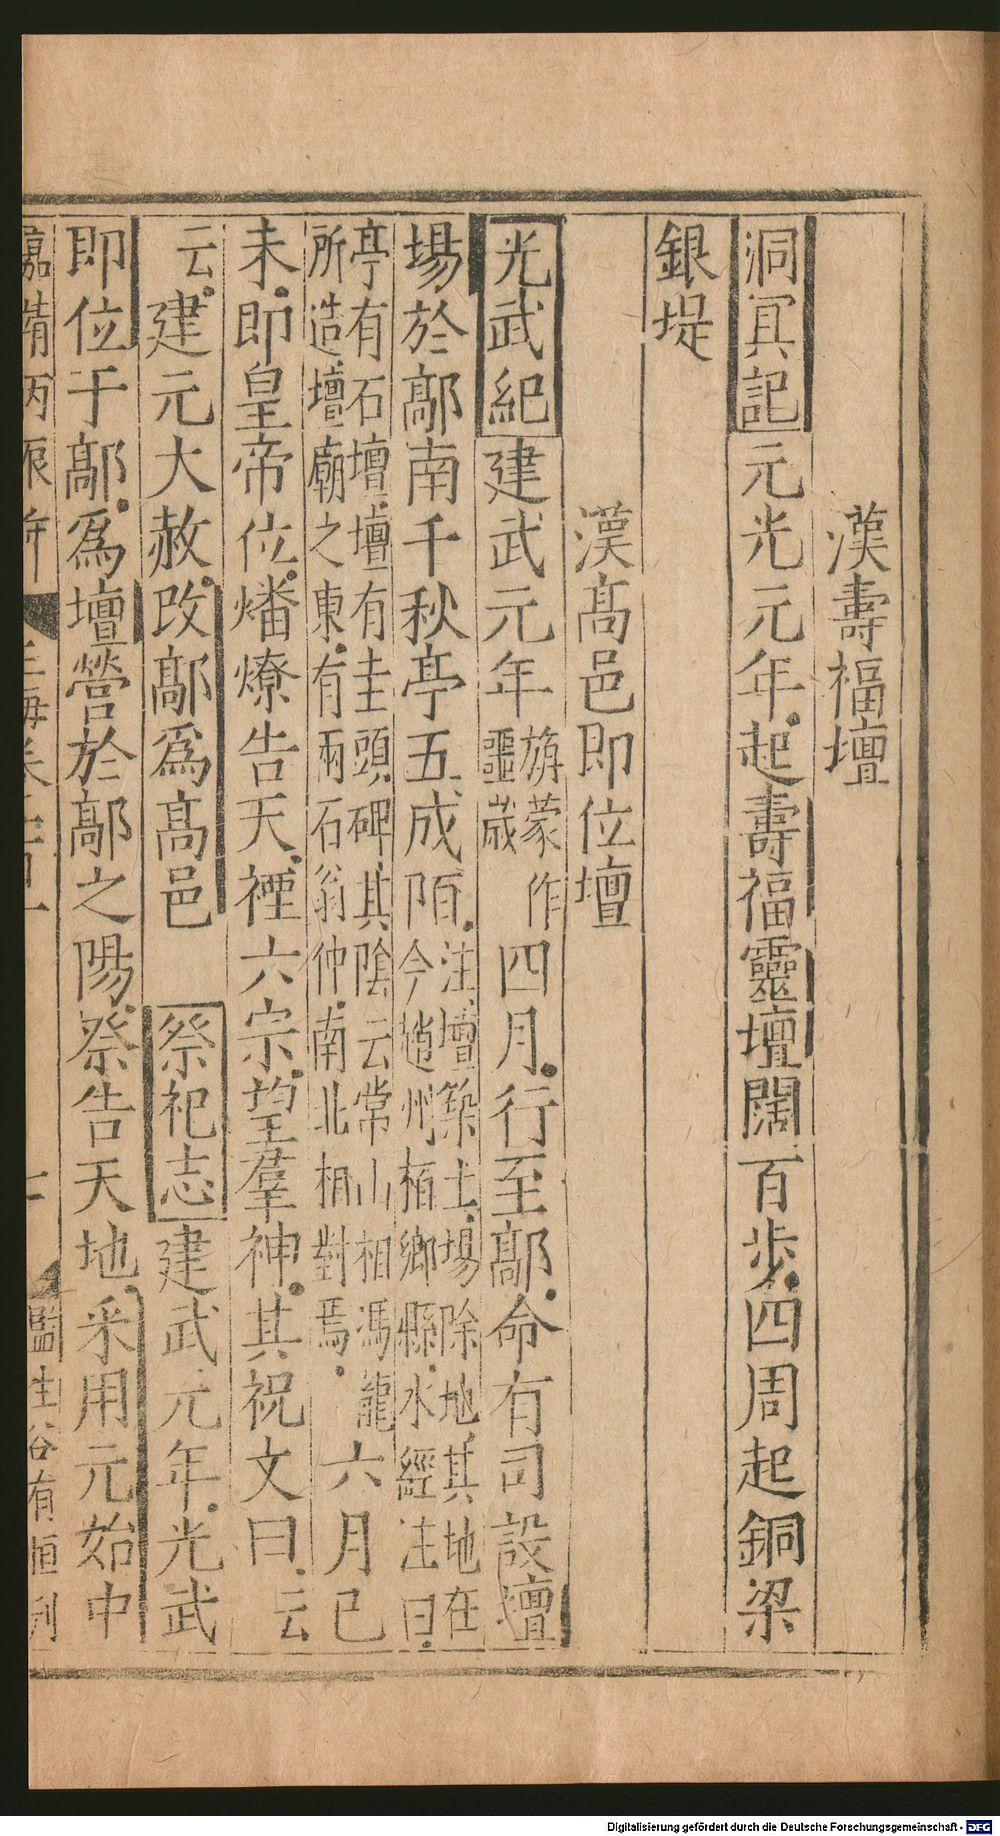 漢壽福壇
洞冥記元光元年起壽福靈壇闊百步四周起銅梁
銀堤
漢髙邑即位壇
光武紀建武元年旃蒙作噩歲四月行至鄗命有司設壇
場於鄗南千秋亭五成陌注壇築土場除地其地在
今趙州栢鄉縣水經注曰
亭有石壇壇有圭頭碑其陰云常山相馮龍
所造壇廟之東有兩石翁仲南北相對焉六月己
未即皇帝位燔燎告天禋六宗望羣神其祝文曰云
云建元大赦改鄗爲髙邑 祭祀志建武元年光武
即位于鄗爲壇營於鄗之陽祭告天地采用元始中
嘉靖丙辰年
玉海卷
七
監生谷有恒刊
Digitalisierung gefördert durch die Deutsche Forschungsgemeinschaft - DFG